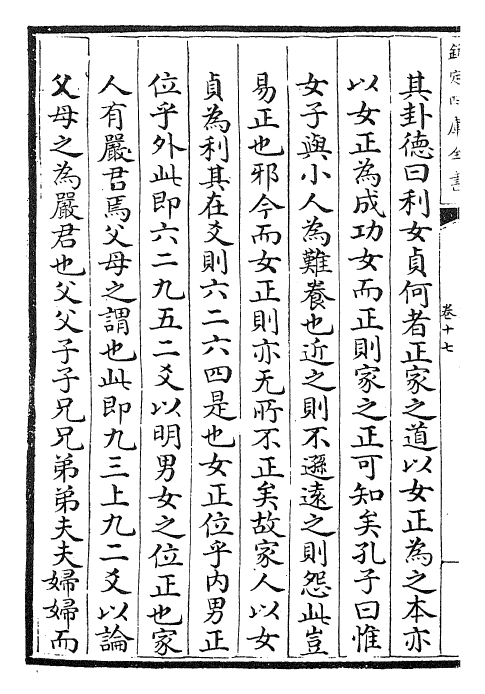 欽定四庫全書
卷十七
其卦德曰利女貞何者正家之道以女正為之本亦
以女正為成功女而正則家之正可知矣孔子曰惟
女子與小人為難養也近之則不遜遠之則怨此豈
易正也邪今而女正則亦无所不正矣故家人以女
貞為利其在爻則六二六四是也女正位乎内男正
位乎外此即六二九五二爻以明男女之位正也家
人有嚴君焉父母之謂也此即九三上九二爻以論
父母之為嚴君也父父子子兄兄弟弟夫夫婦婦而